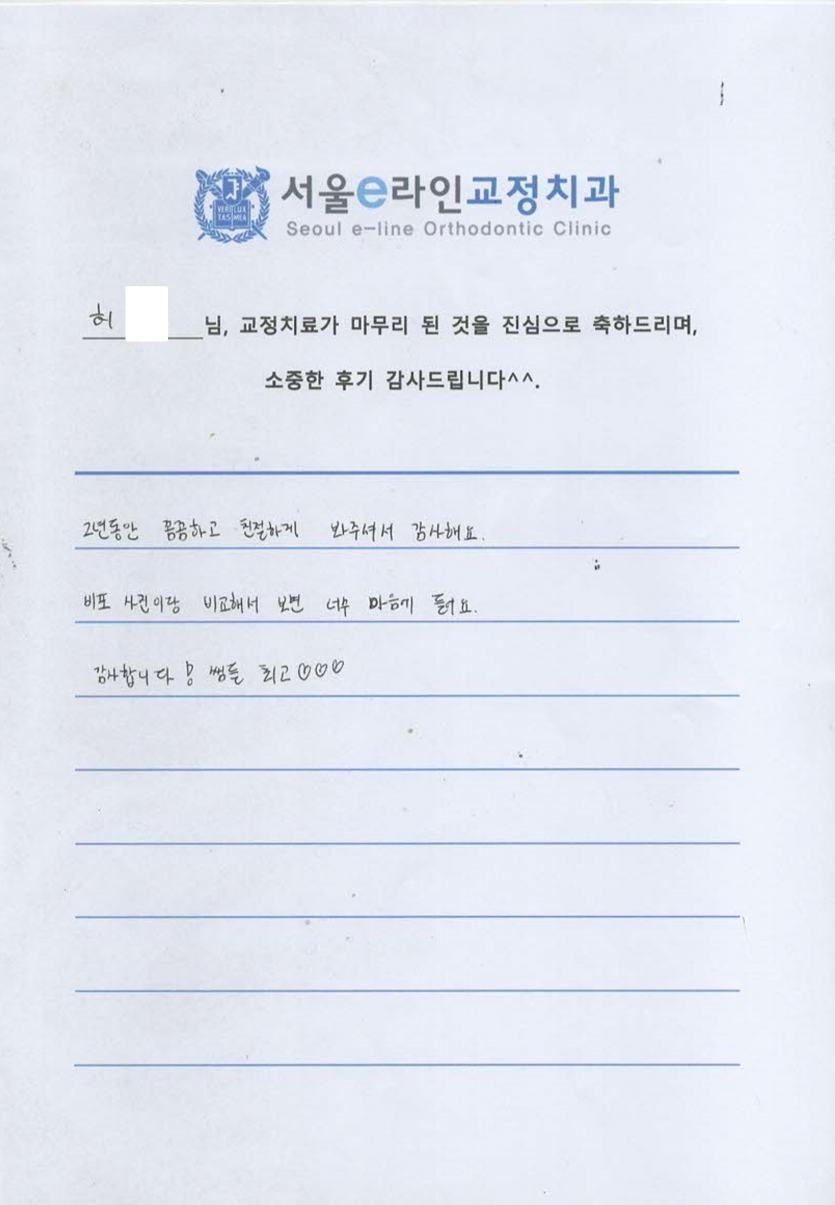 VERI LUX
TAS MEA
서울e라인교정치과
Seoul e-line Orthodontic Clinic
허 님, 교정치료가 마무리 된 것을 진심으로 축하드리며,
소중한 후기 감사드립니다^^.
2년동안 꼼꼼하고 친절하게 봐주셔서 감사해요.
비포 사진이랑 비교해서 보면 너무 마음에 들어요.
감사합니다! 쌤들 최고♡♡♡